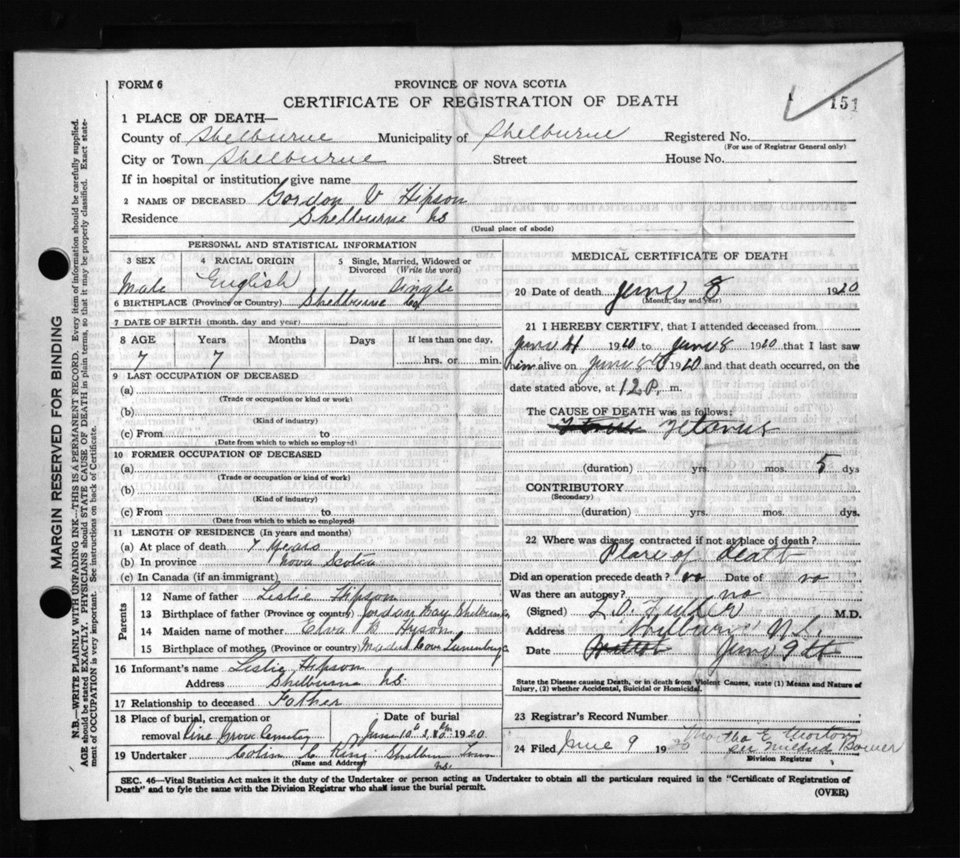 FORM 6
PROVINCE OF NOVA SCOTIA
CERTIFICATE OF REGISTRATION OF DEATH
151
1 PLACE OF DEATH—
County of Shelburne Municipality of Shelburne Registered No.
(For use of Registrar General only)
City or Town Shelburne Street House No.
If in hospital or institution, give name
2 NAME OF DECEASED Gordon V Hipson
Residence Shelburne NS
(Usual place of abode)
PERSONAL AND STATISTICAL INFORMATION
3 SEX Male
4 RACIAL ORIGIN English
5 Single, Married, Widowed or Divorced (Write the word) Single
6 BIRTHPLACE (Province or Country) Shelburne Co
7 DATE OF BIRTH (month, day and year)
8 AGE Years Months Days If less than one day,
7 7 hrs. or min.
9 LAST OCCUPATION OF DECEASED
(a)
(Trade or occupation or kind or work)
(b)
(Kind of industry)
(c) From to
(Date from which to which so employed)
10 FORMER OCCUPATION OF DECEASED
(a)
(Trade or occupation or kind of work)
(b)
(Kind of industry)
(c) From to
(Date from which to which so employed)
11 LENGTH OF RESIDENCE (In years and months)
(a) At place of death 7 years
(b) In province Nova Scotia
(c) In Canada (if an immigrant)
Parents
12 Name of father Leslie Hipson
13 Birthplace of father (Province or country) Jordan Bay Shelburne
14 Maiden name of mother B Hyson
15 Birthplace of mother (Province or country) Cove Lunenburg
16 Informant's name Leslie Hipson
Address Shelburne NS.
17 Relationship to deceased Father
18 Place of burial, cremation or removal Pine Grove Cemetery
Date of burial June 10 1920
19 Undertaker Colin C King Shelburne Town NS
(Name and Address)
MEDICAL CERTIFICATE OF DEATH
20 Date of death June 8 1920
(Month, day and year)
21 I HEREBY CERTIFY, that I attended deceased from
June 4 1920 to June 8 1920 that I last saw
him alive on June 8 1920 and that death occurred, on the
date stated above, at 12 P. m.
The CAUSE OF DEATH was as follows:
Tetanus
(duration) yrs. mos. 5 dys
CONTRIBUTORY
(Secondary)
(duration) yrs. mos. dys.
22 Where was disease contracted if not at place of death?
Place of death
Did an operation precede death? no Date of no
Was there an autopsy? no
(Signed) L.O. Fuller M.D.
Address Shelburne N.S.
Date June 9th
State the Disease causing Death, or in death from Violent Causes, state (1) Means and Nature of
Injury, (2) whether Accidental, Suicidal or Homicidal.
23 Registrar's Record Number
24 Filed June 9 1920 Martha E Morton
per Mildred Bower
Division Registrar
SEC. 46—Vital Statistics Act makes it the duty of the Undertaker or person acting as Undertaker to obtain all the particulars required in the "Certificate of Registration of
Death" and to fyle the same with the Division Registrar who shall issue the burial permit.
(OVER)
MARGIN RESERVED FOR BINDING
N.B.—WRITE PLAINLY WITH UNFADING INK—THIS IS A PERMANENT RECORD. Every item of information should be carefully supplied.
AGE should be stated EXACTLY. PHYSICIANS should STATE CAUSE OF DEATH in plain terms, so that it may be properly classified. Exact state-
ment of OCCUPATION is very important. See instructions on back of Certificate.